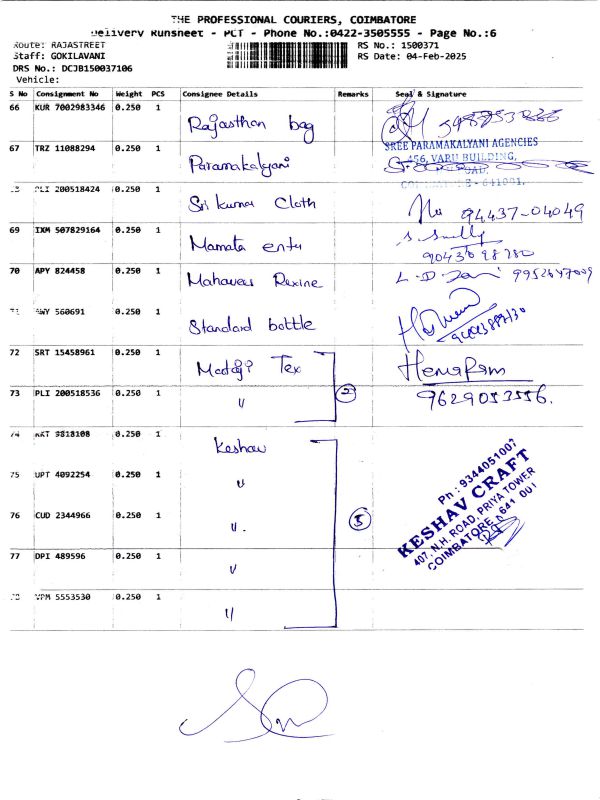 THE PROFESSIONAL COURIERS, COIMBATORE
Delivery Runsheet - PCT - Phone No.:0422-3505555 - Page No.:6
Route: RAJASTREET
RS No.: 1500371
Staff: GOKILAVANI
RS Date: 04-Feb-2025
DRS No.: DCJB150037106
Vehicle:
S No Consignment No Weight PCS Consignee Details Remarks Seal & Signature
66 KUR 7002983346 0.250 1 Rajasthan bag
67 TRZ 11088294 0.250 1 Paramakalyani
SREE PARAMAKALYANI AGENCIES
456, VARU BUILDING,
ROAD,
COIMBATORE - 641001.
PLI 200518424 0.250 1 Sri kumar Cloth
94437-04049
69 IXM 507829164 0.250 1 Mamata entr
70 APY 824458 0.250 1 Mahaveer Rexine
71 AWY 560691 0.250 1 Standard bottle
72 SRT 15458961 0.250 1 Mataji Tex
Hemaram
73 PLI 200518536 0.250 1 "
2
9629053556.
74 KKT 9818108 0.250 1 Keshav
75 UPT 4092254 0.250 1 "
76 CUD 2344966 0.250 1 "
5
77 DPI 489596 0.250 1 "
78 VPM 5553530 0.250 1 "
Pn : 9344051007
KESHAV CRAFT
407, N.H. ROAD, PRIYA TOWER
COIMBATORE - 641 001